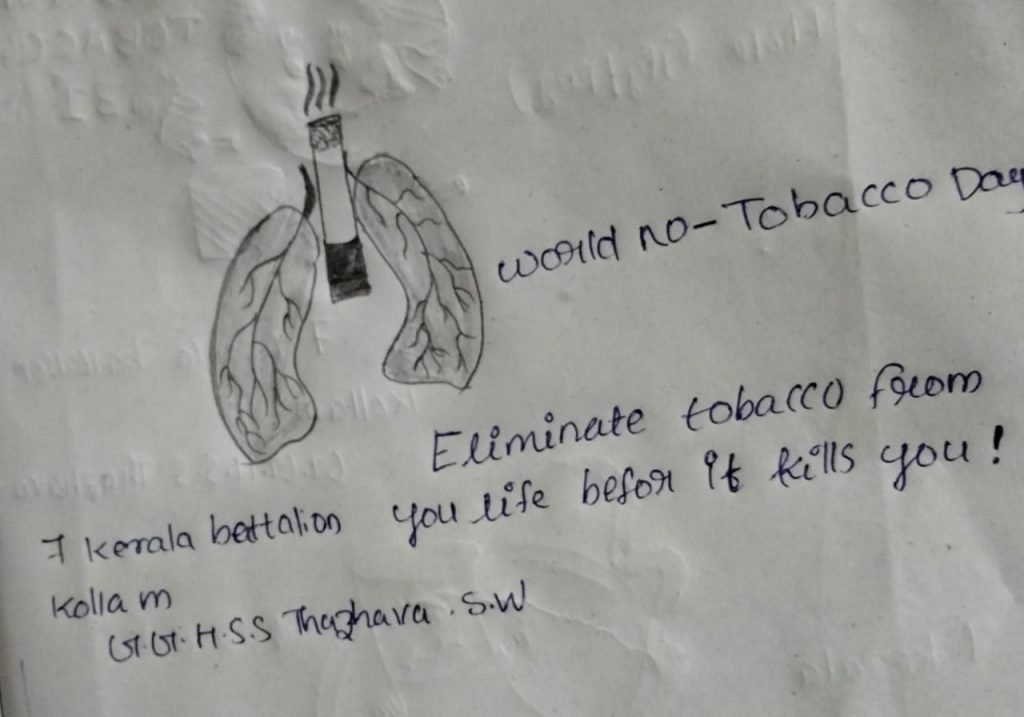 World no-Tobacco Day
Eliminate tobacco from
you life befor it kills you!
7 kerala battalion
kollam
G.G.H.S.S Thazhava .S.W